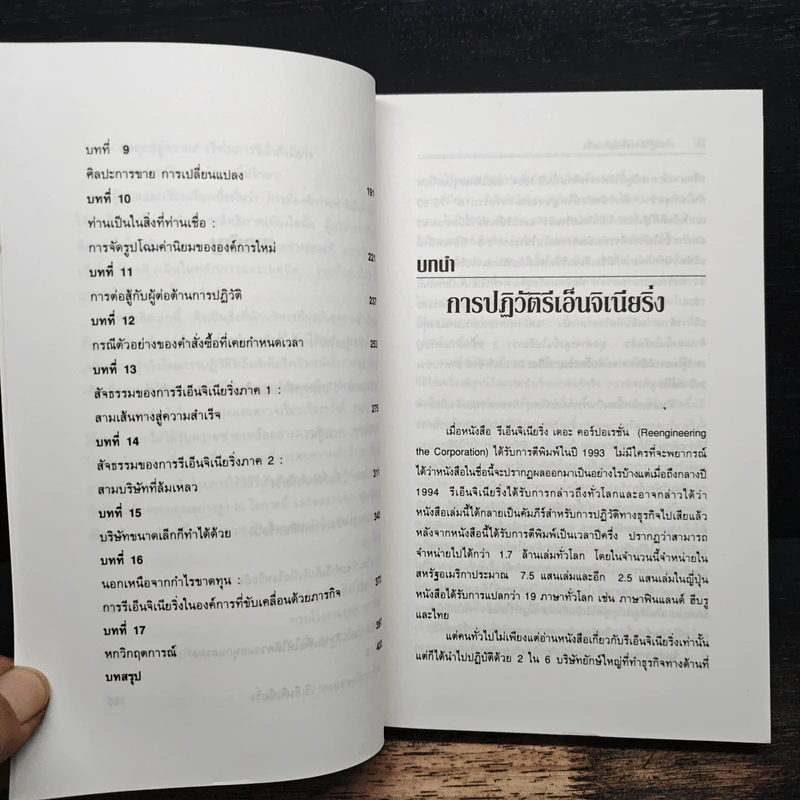 บทที่ 9
ศิลปะการขาย การเปลี่ยนแปลง 191
บทที่ 10
ท่านเป็นในสิ่งที่ท่านเชื่อ :
การจัดรูปโฉมค่านิยมขององค์การใหม่ 221
บทที่ 11
การต่อสู้กับผู้ต่อต้านการปฏิวัติ 237
บทที่ 12
กรณีตัวอย่างของคำสั่งซื้อที่เคยกำหนดเวลา
บทที่ 13
สัจธรรมของการรีเอ็นจิเนียริ่งภาค 1 :
สามเส้นทางสู่ความสำเร็จ 275
บทที่ 14
สัจธรรมของการรีเอ็นจิเนียริ่งภาค 2 :
สามบริษัทที่ล้มเหลว 311
บทที่ 15
บริษัทขนาดเล็กก็ทำได้ด้วย
บทที่ 16
นอกเหนือจากกำไรขาดทุน :
การรีเอ็นจิเนียริ่งในองค์การที่ขับเคลื่อนด้วยภารกิจ
บทที่ 17
หกวิกฤตการณ์
บทสรุป
บทนำ
การปฏิวัติรีเอ็นจิเนียริ่ง
เมื่อหนังสือ รีเอ็นจิเนียริ่ง เดอะ คอร์ปอเรชั่น (Reengineering
the Corporation) ได้รับการตีพิมพ์ในปี 1993 ไม่มีใครที่จะพยากรณ์
ได้ว่าหนังสือในชื่อนี้จะปรากฏผลออกมาเป็นอย่างไรบ้างแต่เมื่อถึงกลางปี
1994 รีเอ็นจิเนียริ่งได้รับการกล่าวถึงทั่วโลกและอาจกล่าวได้ว่า
หนังสือเล่มนี้ได้กลายเป็นคัมภีร์สำหรับการปฏิวัติทางธุรกิจไปเสียแล้ว
หลังจากหนังสือนี้ได้รับการตีพิมพ์เป็นเวลาปีครึ่ง ปรากฏว่าสามารถ
จำหน่ายไปได้กว่า 1.7 ล้านเล่มทั่วโลก โดยในจำนวนนี้จำหน่ายใน
สหรัฐอเมริกาประมาณ 7.5 แสนเล่มและอีก 2.5 แสนเล่มในญี่ปุ่น
หนังสือได้รับการแปลกว่า 19 ภาษาทั่วโลก เช่น ภาษาฟินแลนด์ ฮีบรู
และไทย
แต่คนทั่วไปไม่เพียงแต่อ่านหนังสือเกี่ยวกับรีเอ็นจิเนียริ่งเท่านั้น
แต่ก็ได้นำไปปฏิบัติด้วย 2 ใน 6 บริษัทยักษ์ใหญ่ที่ทำธุรกิจทางด้านที่